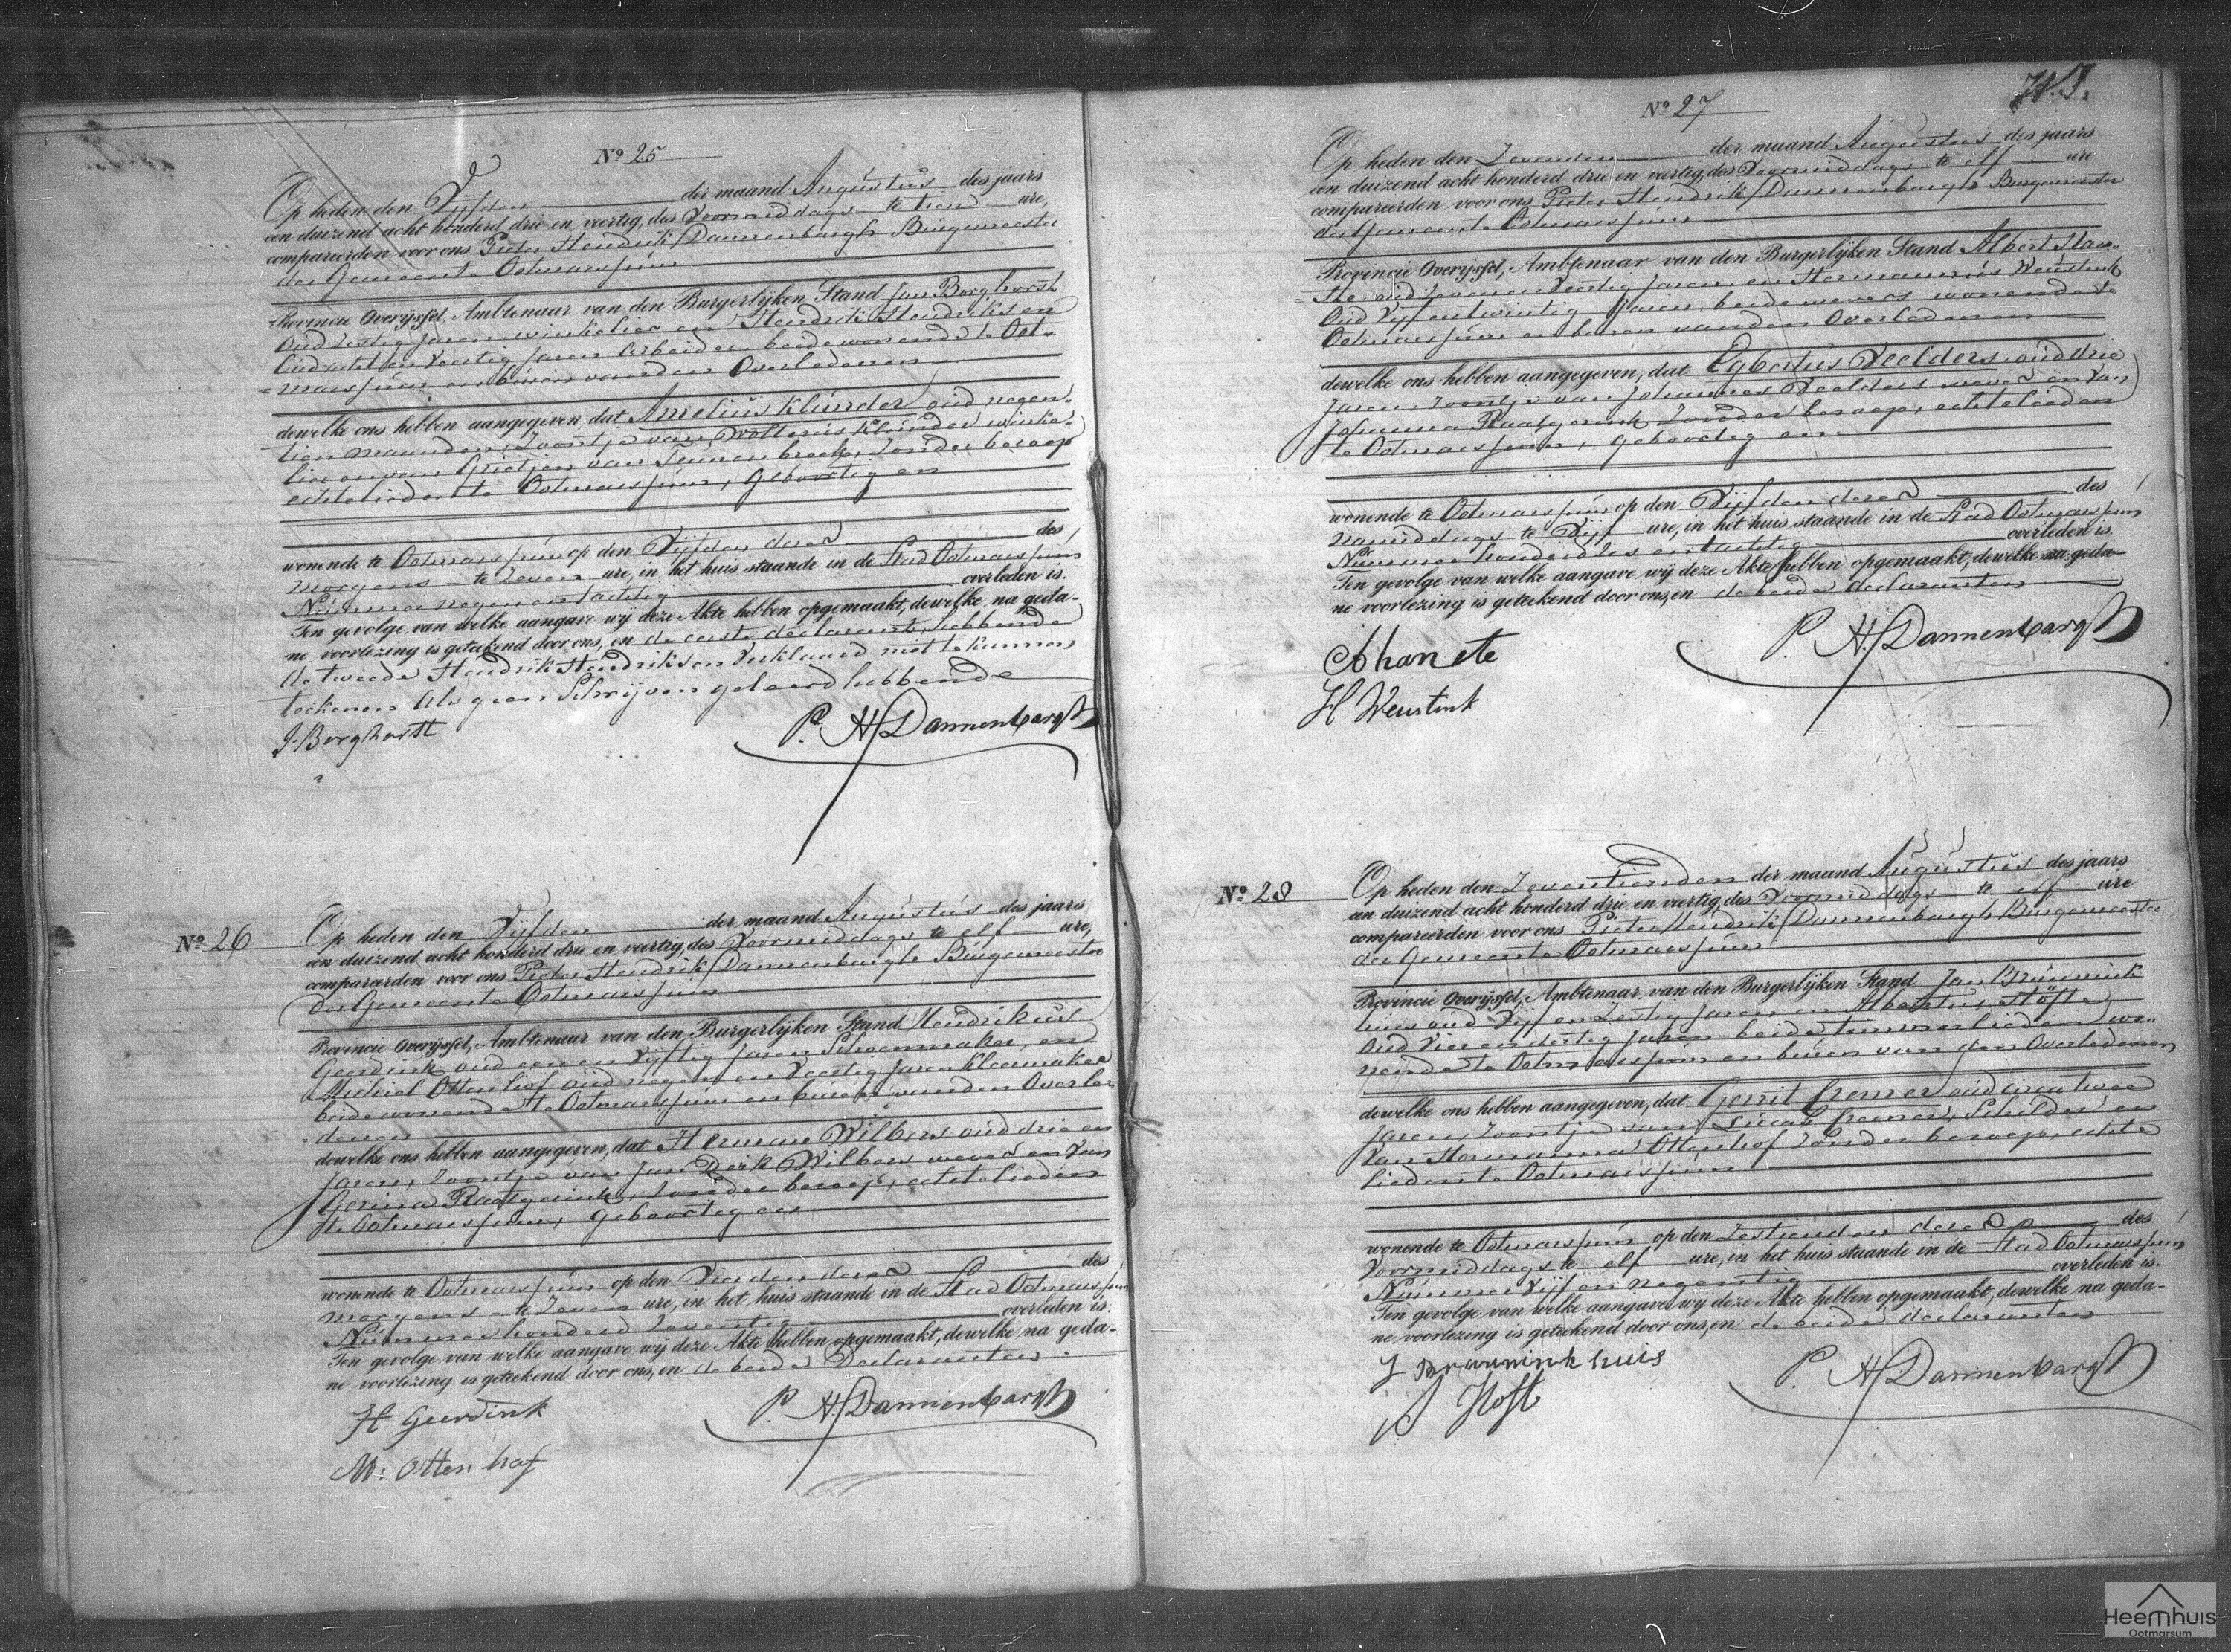 Nº 25
Op heden den Vijfden der maand Augustus des jaars
een duizend acht honderd drie en veertig, des Voormiddags te tien ure,
compareerden voor ons Pieter Hendrik Dannenbargh Burgemeester
der Gemeente Ootmarssum
Provincie Overijssel, Ambtenaar van den Burgerlijken Stand Jan Borghorst
Oud Zestig Jaren winkelier en Hendrik Hendriksen
Oud acht en Veertig Jaren Arbeider beide wonende te Oot-
marssum en buren van den Overledenen
dewelke ons hebben aangegeven, dat Amelius Klunder oud negen-
tien maanden, Zoontje van Wolterus Klunder winke-
lier en van Grietjen van Tannenbroek, Zonder beroep
echtelieden te Ootmarssum, Geboortig en
wonende te Ootmarssum op den Vijfden dezer des
morgens te Zeven ure, in het huis staande in de Stad Ootmarssum
Nummer negen en tachtig overleden is.
Ten gevolge van welke aangave wij deze Akte hebben opgemaakt, dewelke na geda-
ne voorlezing is geteekend door ons, en de eerste declarant, hebbende
de tweede Hendrik Hendriksen Verklaard niet te kunnen
teekenen als geen Schrijven geleerd hebbende
J. Borghorst P. H. Dannenbargh
Nº 26
Op heden den Vijfden der maand Augustus des jaars
een duizend acht honderd drie en veertig, des Voormiddags te elf ure,
compareerden voor ons Pieter Hendrik Dannenbargh Burgemeester
der Gemeente Ootmarssum
Provincie Overijssel, Ambtenaar van den Burgerlijken Stand Hendrikus
Geerdink oud een en Vijftig Jaren Schoenmaker, en
Michiel Ottenhof oud negen en Veertig Jaren Kleermaker
beide wonende te Ootmarssum en buren van den Overle-
denen
dewelke ons hebben aangegeven, dat Herman Wilbers oud drie en
jaren, Zoontje van Jan Derk Wilbers wever en Van
Gerina Raatgerink, Zonder beroep, echtelieden
te Ootmarssum, Geboortig en
wonende te Ootmarssum op den Vierden dezer des
morgens te Zeven ure, in het huis staande in de Stad Ootmarssum
Nummer honderd Zeventig overleden is.
Ten gevolge van welke aangave wij deze Akte hebben opgemaakt, dewelke na geda-
ne voorlezing is geteekend door ons, en de beide Declaranten
H Geerdink P. H. Dannenbargh
M: Ottenhof
Nº 27
Op heden den Zevenden der maand Augustus des jaars
een duizend acht honderd drie en veertig, des Voormiddags te elf ure
compareerden voor ons Pieter Hendrik Dannenbargh Burgemeester
der Gemeente Ootmarssum
Provincie Overijssel, Ambtenaar van den Burgerlijken Stand Albert Han-
ste oud Zeven en Veertig Jaren en Hermannus Weustink
Oud Vijf en twintig Jaren, beide wevers wonende te
Ootmarssum en buren van den Overledenen
dewelke ons hebben aangegeven, dat Egbertus Veelders oud drie
Jaren, Zoontje van Johannes Veelders wever en Van
Johanna Raatgerink Zonder beroep, echtelieden
te Ootmarssum, geboortig en
wonende te Ootmarssum op den Vijfden dezer des
namiddags te Vijf ure, in het huis staande in de Stad Ootmarssum
Nummer honderd Zes en tachtig overleden is.
Ten gevolge van welke aangave wij deze Akte hebben opgemaakt, dewelke na geda-
ne voorlezing is geteekend door ons, en de beide declaranten
A hanste P. H. Dannenbargh
H Weustink
Nº 28
Op heden den Zeventienden der maand Augustus des jaars
een duizend acht honderd drie en veertig, des Voormiddags te elf ure
compareerden voor ons Pieter Hendrik Dannenbargh Burgemeester
der Gemeente Ootmarssum
Provincie Overijssel, Ambtenaar van den Burgerlijken Stand Jan Bruunink
huis oud Vijf en Zestig Jaren en Albertus Höfte
Oud Vier en dertig Jaren beide, timmerlieden wo-
nende te Ootmarssum en buren van den Overledenen
dewelke ons hebben aangegeven, dat Gerrit Cremer oud circa twee
Jaren, Zoontje van Lucas Cremer, Schilder en
Van Hermanna Ottenhof Zonder beroep, echte
lieden te Ootmarssum
wonende te Ootmarssum op den Zestienden dezer des
Voormiddags te elf ure, in het huis staande in de Stad Ootmarssum
Nummer Vijf en negentig overleden is.
Ten gevolge van welke aangave wij deze Akte hebben opgemaakt, dewelke na geda-
ne voorlezing is geteekend door ons, en de beide declaranten
J Bruuninkhuis P. H. Dannenbargh
A Hofte
Heemhuis
Ootmarsum